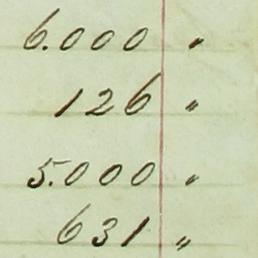 6.000 "
126 "
5.000 "
631 "